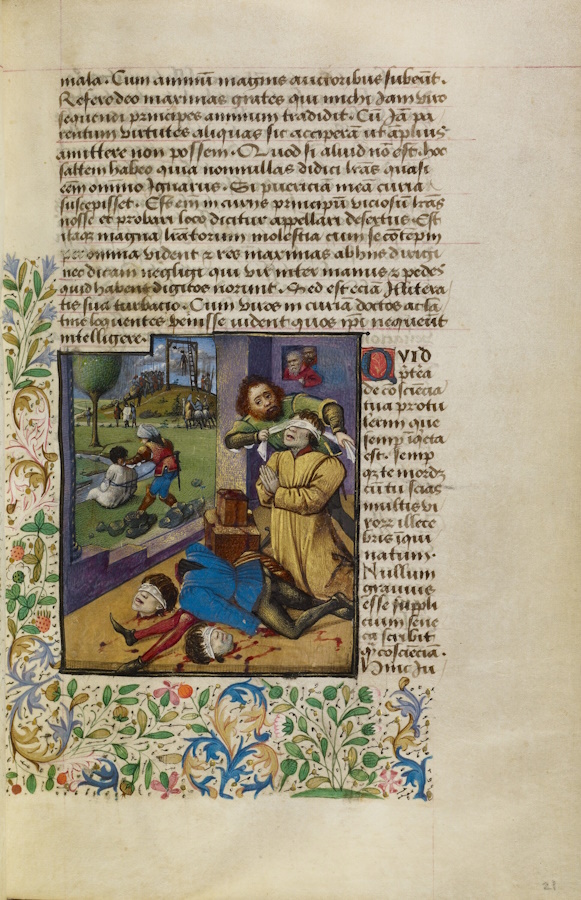 mala. Cum animū magnis auctoribus subeūt.
Refero deo maximas grates qui michi jam viro
sequendi principes animum tradidit. Cū Jā pa
rentum virtutes aliquas sic acceperā ut āplius
amittere non possem. Quod si aliud nō est. hoc
saltem habeo quia nonnullas didici lrās quasi
omnino Jgnarus. Si puericiā meā curia
suscepisset. Est em in curiis principū viciosū lrās
nosse et probari loco dicitur appellari desertus. Est
itaqz magna lrātorum molestia cum se cōtempni
omnia vident & res maximas abhiis dirigi
ne dicam negligi qui vix inter manus & pedes
quid habent digitos norunt. Sed est eciā Jllitera
tis sua turbacio. Cum viros in curiā doctos ac la
tine loquentes venisse vident quos ipi nequeūt
intelligere.
QVID
ptēa
de cōsciēcia
tua protu
lerim que
semp īqeta
est. Semp
qz te mordz
cū tu scias
multis vi
illece
bris īqui
natum.
Nullum
gravius
esse suppli
cium sene
ca scribit
qz cōsciēciā.
Hinc Ju
21